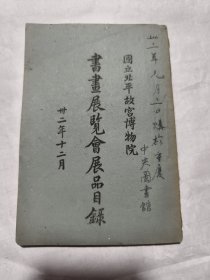 卅二年九月六日購於重慶
中央圖書館
國立北平故宮博物院
書畫展覽會展品目錄
卅二年十二月